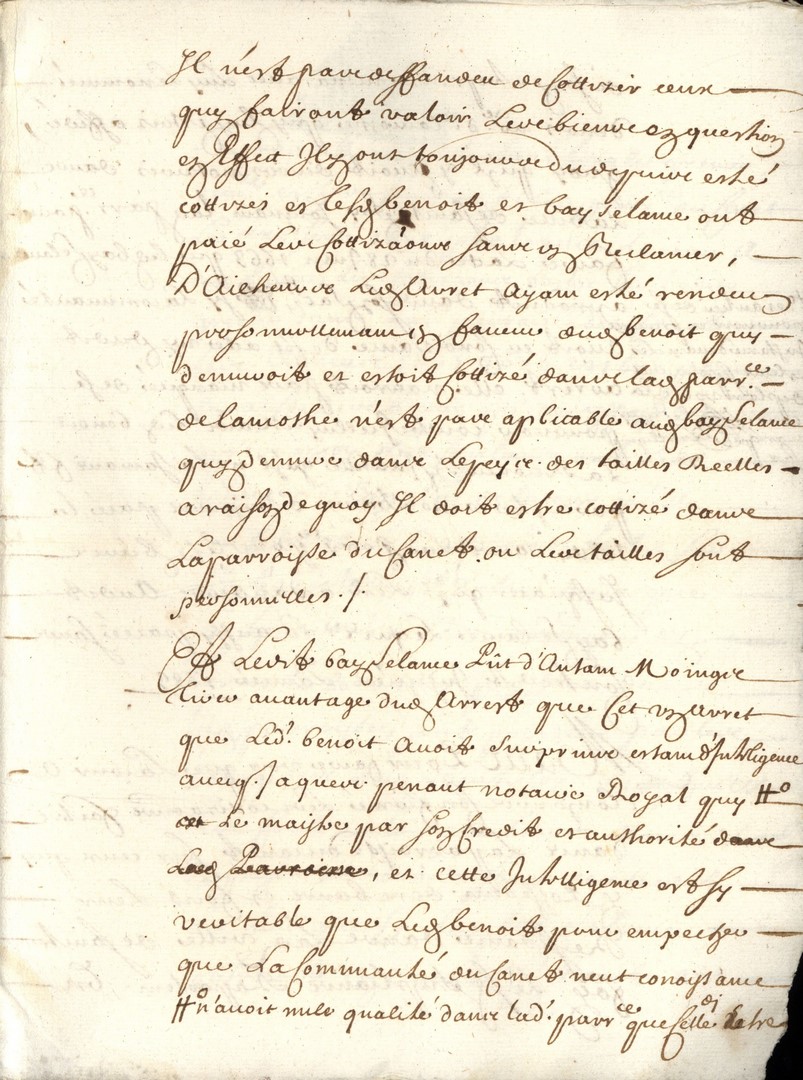 Il n'est pas deffandeu de Cottizer ceux
quy fairont valoir Les biens en question
en Effect Ilz ont tousjours du depuis esté
cottizés et lesd benoit et bayselame ont
paié Les Cottizâons sans en Reclamer,
D'Aielheurs Led Arret Ayam esté rendeu
personnellemam en faveur dud benoit quy
demuroit et estoit Cottizé dans lad parr.ce
de lamothe n'est pas aplicable aud bayselame
quy demure dans Le peyis des tailles Reelles
a raison de quoy Il doit estre cottizé dans
La parroisse du Canet ou Les tailles sont
personnelles ./.
Et Ledit bayselame Pût d'Autam Moingz
tirer avantage dud Arrest que Cet un arret
que Led.t benoit avoit surprins estam d'Intelligence
avecq. Jaques penant notaire Royal quy #o
est Le maistre par son Credit et authorité dans
Lad Parroisse, et cette Intelligence est sy
veritable que Led benoit pour empecher
que La Communauté du Canet neut conoissance
#o n'avoit nulle qualité dans lad.t parr.ce que Celle di Estre